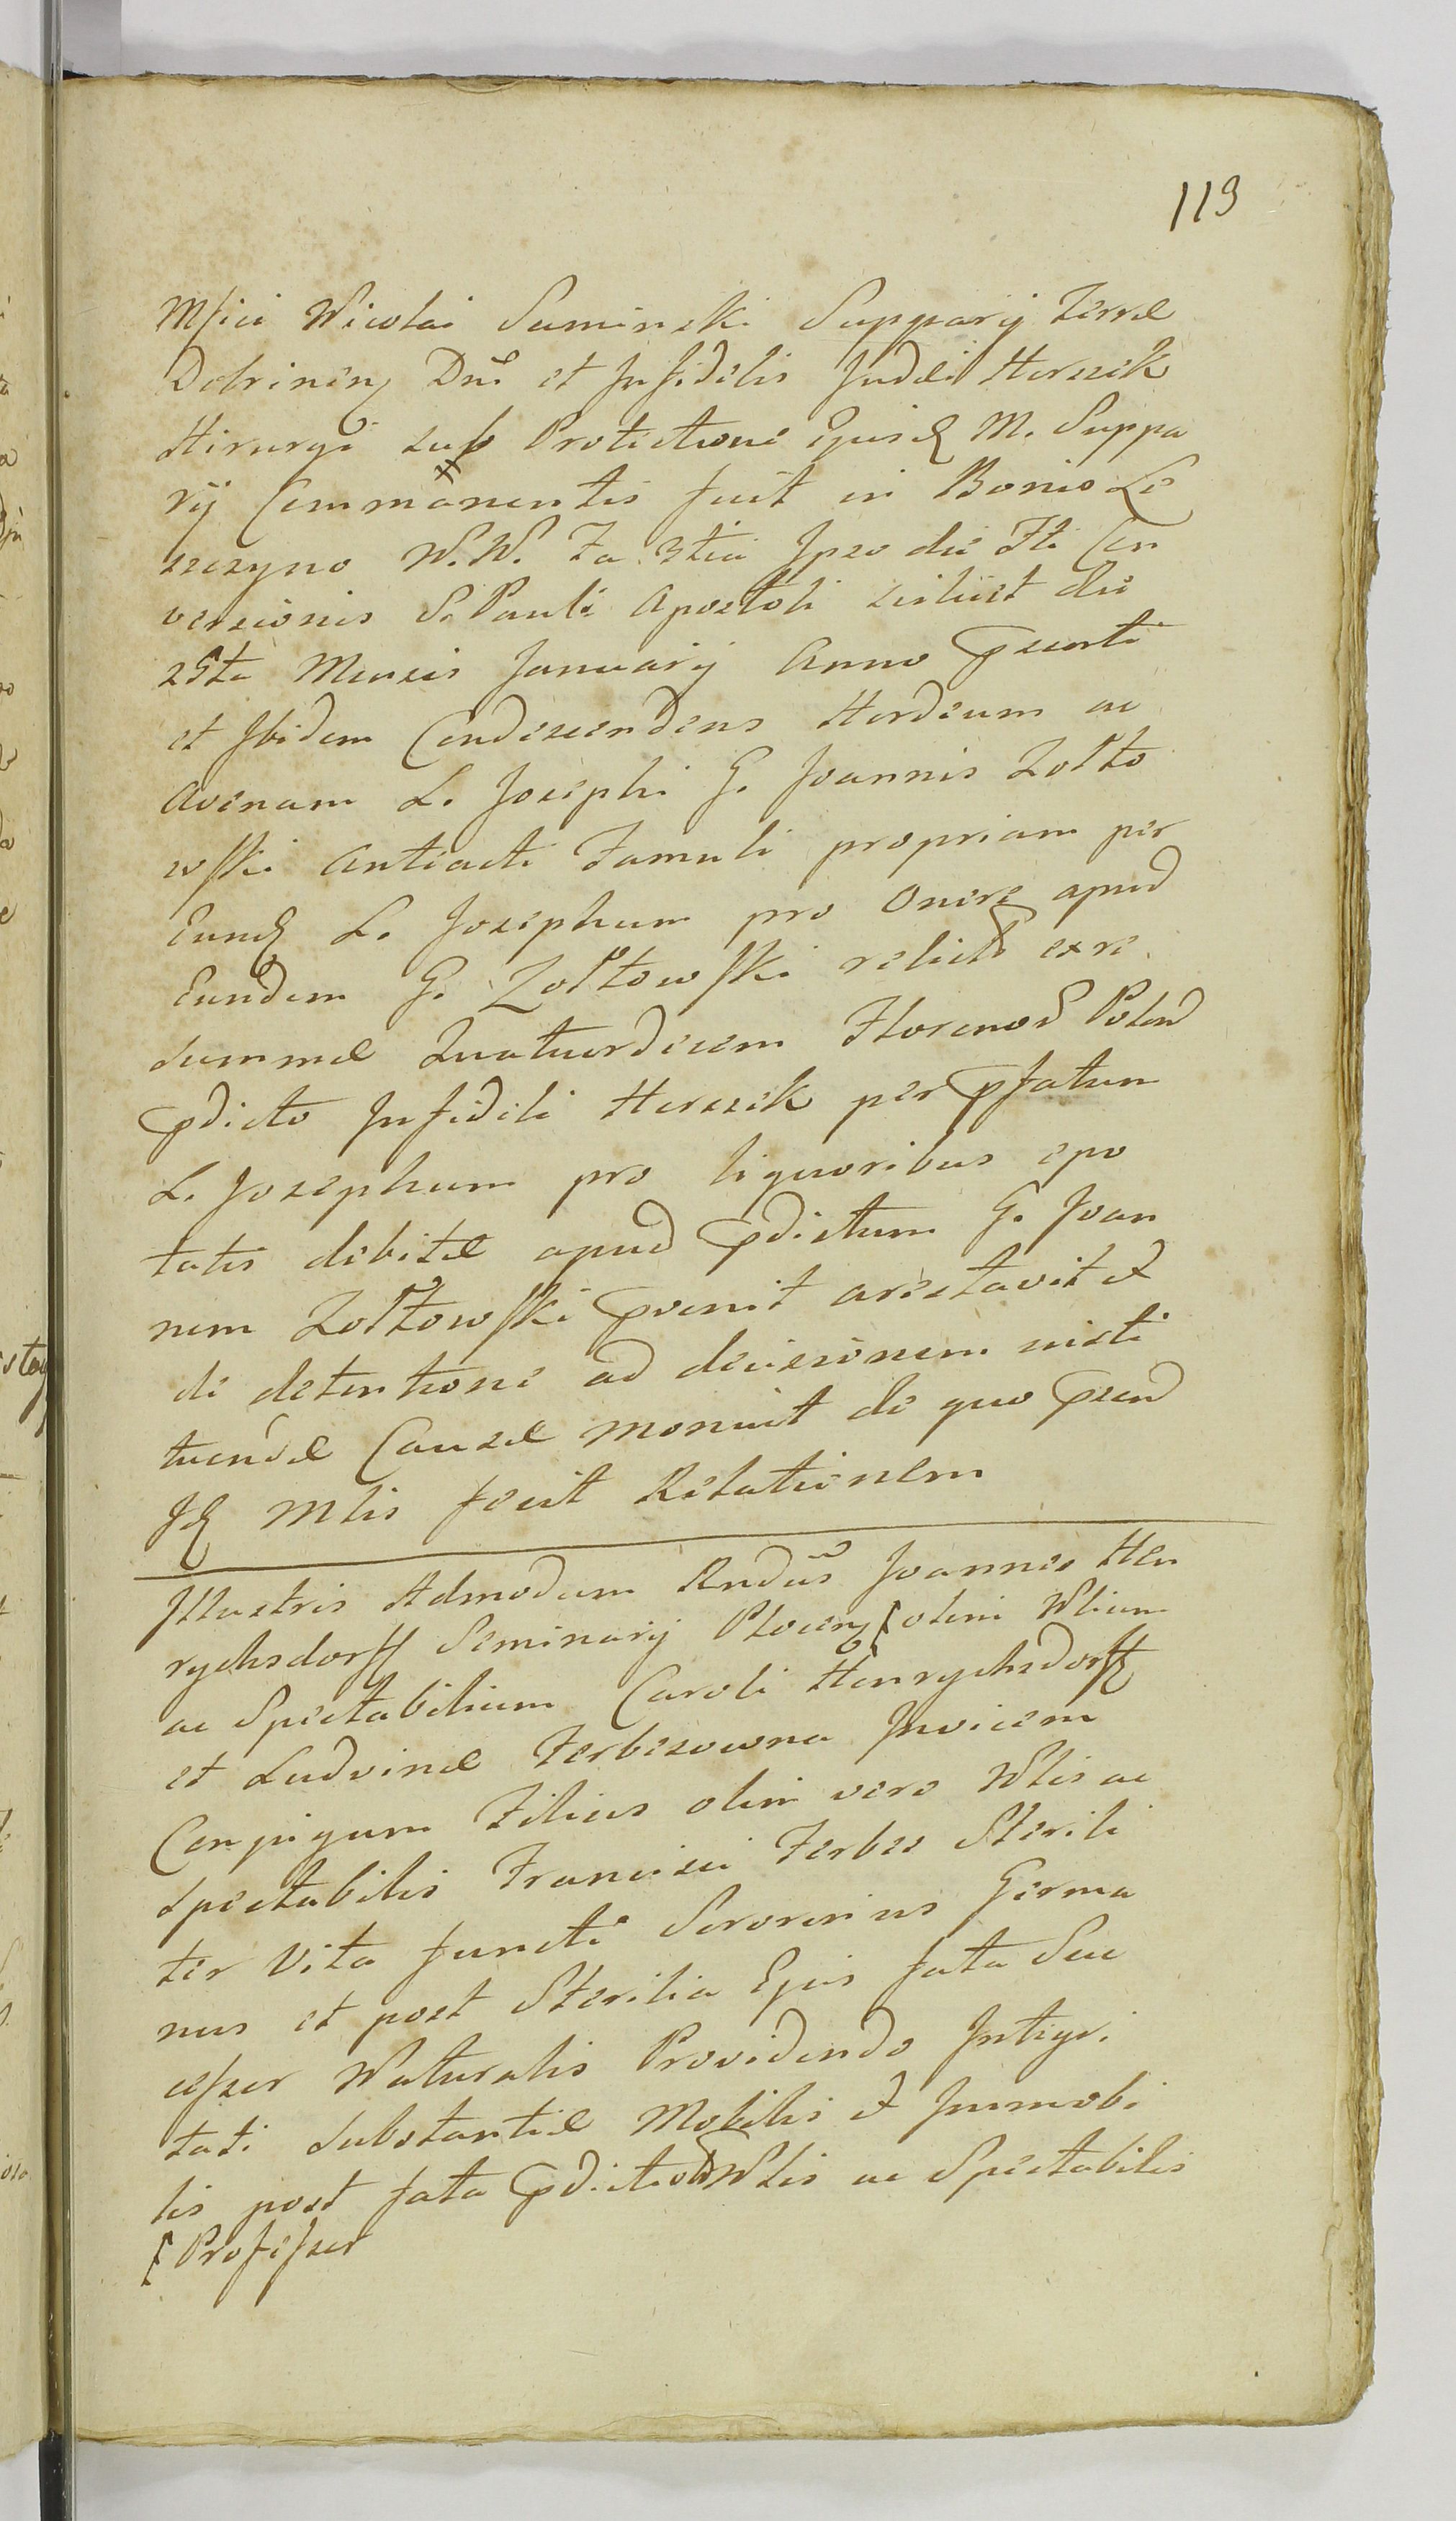 113
Mfici Nicolai Suminski Supparij Terræ
Dobrinen, Dni et Infidelis Judei Herszek
Hirurgi sub Protectione Ejusd M. Suppa
rij Commanentis fuit in Bonis Le
szczyno N.N. Fa 3tia Ipso die Fti Con
versionis S. Pauli Apostoli scilicet die
25ta Mensis Januarij Anno psenti
et Ibidem Condescendens Hordeum ac
Avenam L. Josephi G. Joannis Zołto
wski Anteacti Famuli propriam per
Eund L. Josephum pro Onere apud
Eundem G. Zołtowski relict ex re
summæ Quatuordecem Florenor Polon
pdicto Infideli Herszek per pfatum
L. Josephum pro liquoribus epo
tatis debitæ apud pdictum G. Joan
nem Zołtowski pvenit arestavit et
de detentione ad decisionem insti
tuendæ Causæ monuit de quo psend
Id Mlis fecit Relationem
Illustris Admodum Rndus Joannes Hen
rychsdorff Seminarij Plocen, [olim Nlium
ac Spectabilium Caroli Henrychsdorff
et Ludvinæ Ferbesowna Invicem
Conjugum Filius olim vero Nlis ac
Spectabilis Francisci Ferbes Sterili
ter Vita functi Sororinus Germa
nus et post Sterilia Ejus fata Suc
cessor Naturalis Providendo Integri
tati Substantiæ Mobilis et Immobi
lis post fata pdicti Nlis ac Spectabilis
[Professor